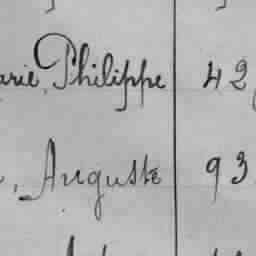 arie, Philippe 42
, Auguste 93